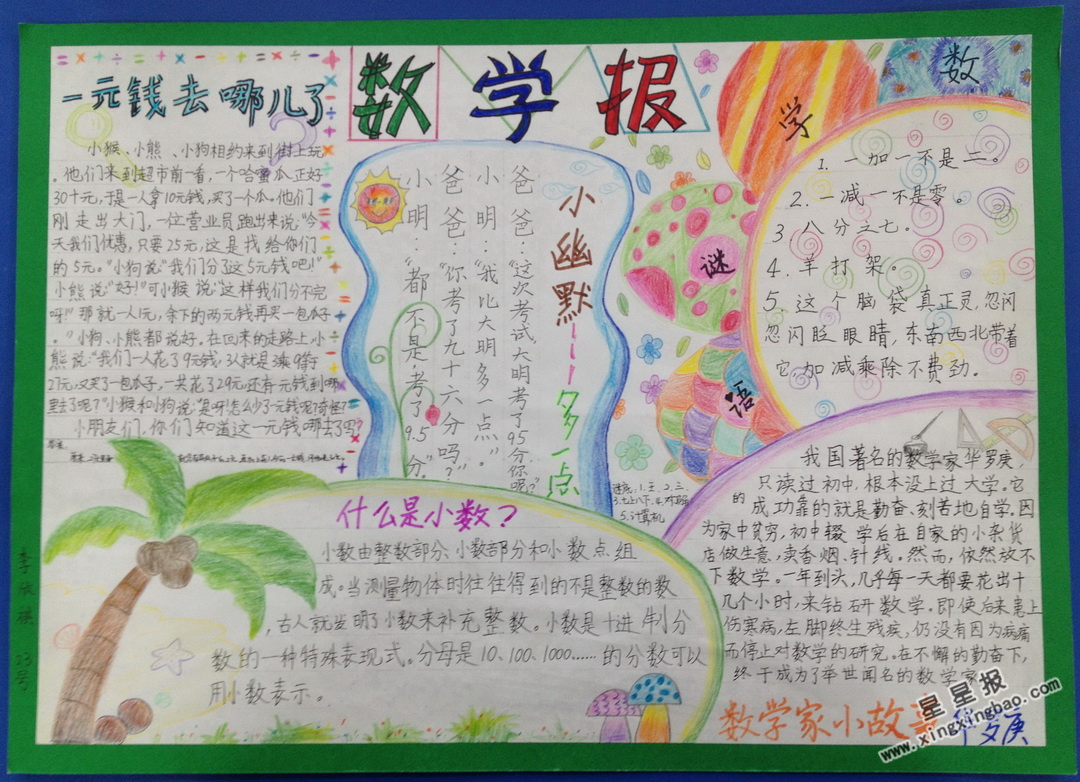 数学报
一元钱去哪儿了
小猴、小熊、小狗相约来到街上玩
。他们来到超市前一看,一个哈蜜瓜正好
30十元,于是一人拿10元钱,买了一个瓜。他们
刚走出大门,一位营业员跑出来说:“今
天我们优惠,只要25元,这是找给你们
的5元。”小狗说:“我们分了这5元钱吧!”
小熊说:“好!”可小猴说:“这样我们分不完
呀!”那就一人1元,余下的两元钱再买一包瓜子
。”小狗、小熊都说好。在回来的走路上,小
熊说:“我们一人花了9元钱,3人就是
27元,又买了一包瓜子,一共花了29元,还有一元钱到哪
里去了呢?”小猴和小狗说:“是呀!怎么少了一元钱呢?奇怪?
小朋友们,你们知道这一元钱哪去了吗?
小幽默——多一点
爸爸:“这次考试大明考了95分,你呢?”
小明:“我比大明多一点。”
爸爸:“你考了九十六分吗?”
小明:“都不是,考了9.5分。”
数
学
谜
语
1. 一加一不是二。
2. 一减一不是零。
3. 八分之七。
4. 羊打架。
5. 这个脑袋真正灵,忽闪
忽闪眨眼睛,东南西北带着
它,加减乘除不费劲。
谜底:1.王 2.三
3.七上八下 4.对顶角
5.计算机
什么是小数?
小数由整数部分、小数部分和小数点组
成。当测量物体时往往得到的不是整数的数
,古人就发明了小数来补充整数。小数是十进制分
数的一种特殊表现式。分母是10、100、1000……的分数可以
用小数表示。
我国著名的数学家华罗庚,
只读过初中,根本没上过大学。它
的成功靠的就是勤奋、刻苦地自学。因
为家中贫穷,初中辍学后在自家的小杂货
店做生意,卖香烟、针线。然而,依然放不
下数学。一年到头,几乎每一天都要花出十
几个小时,来钻研数学。即使后来患上
伤寒病,左脚终生残疾,仍没有因为病痛
而停止对数学的研究。在不懈的勤奋下,
终于成为了举世闻名的数学家
数学家小故
罗庚
23号
星星报
www.xingxingbao.com